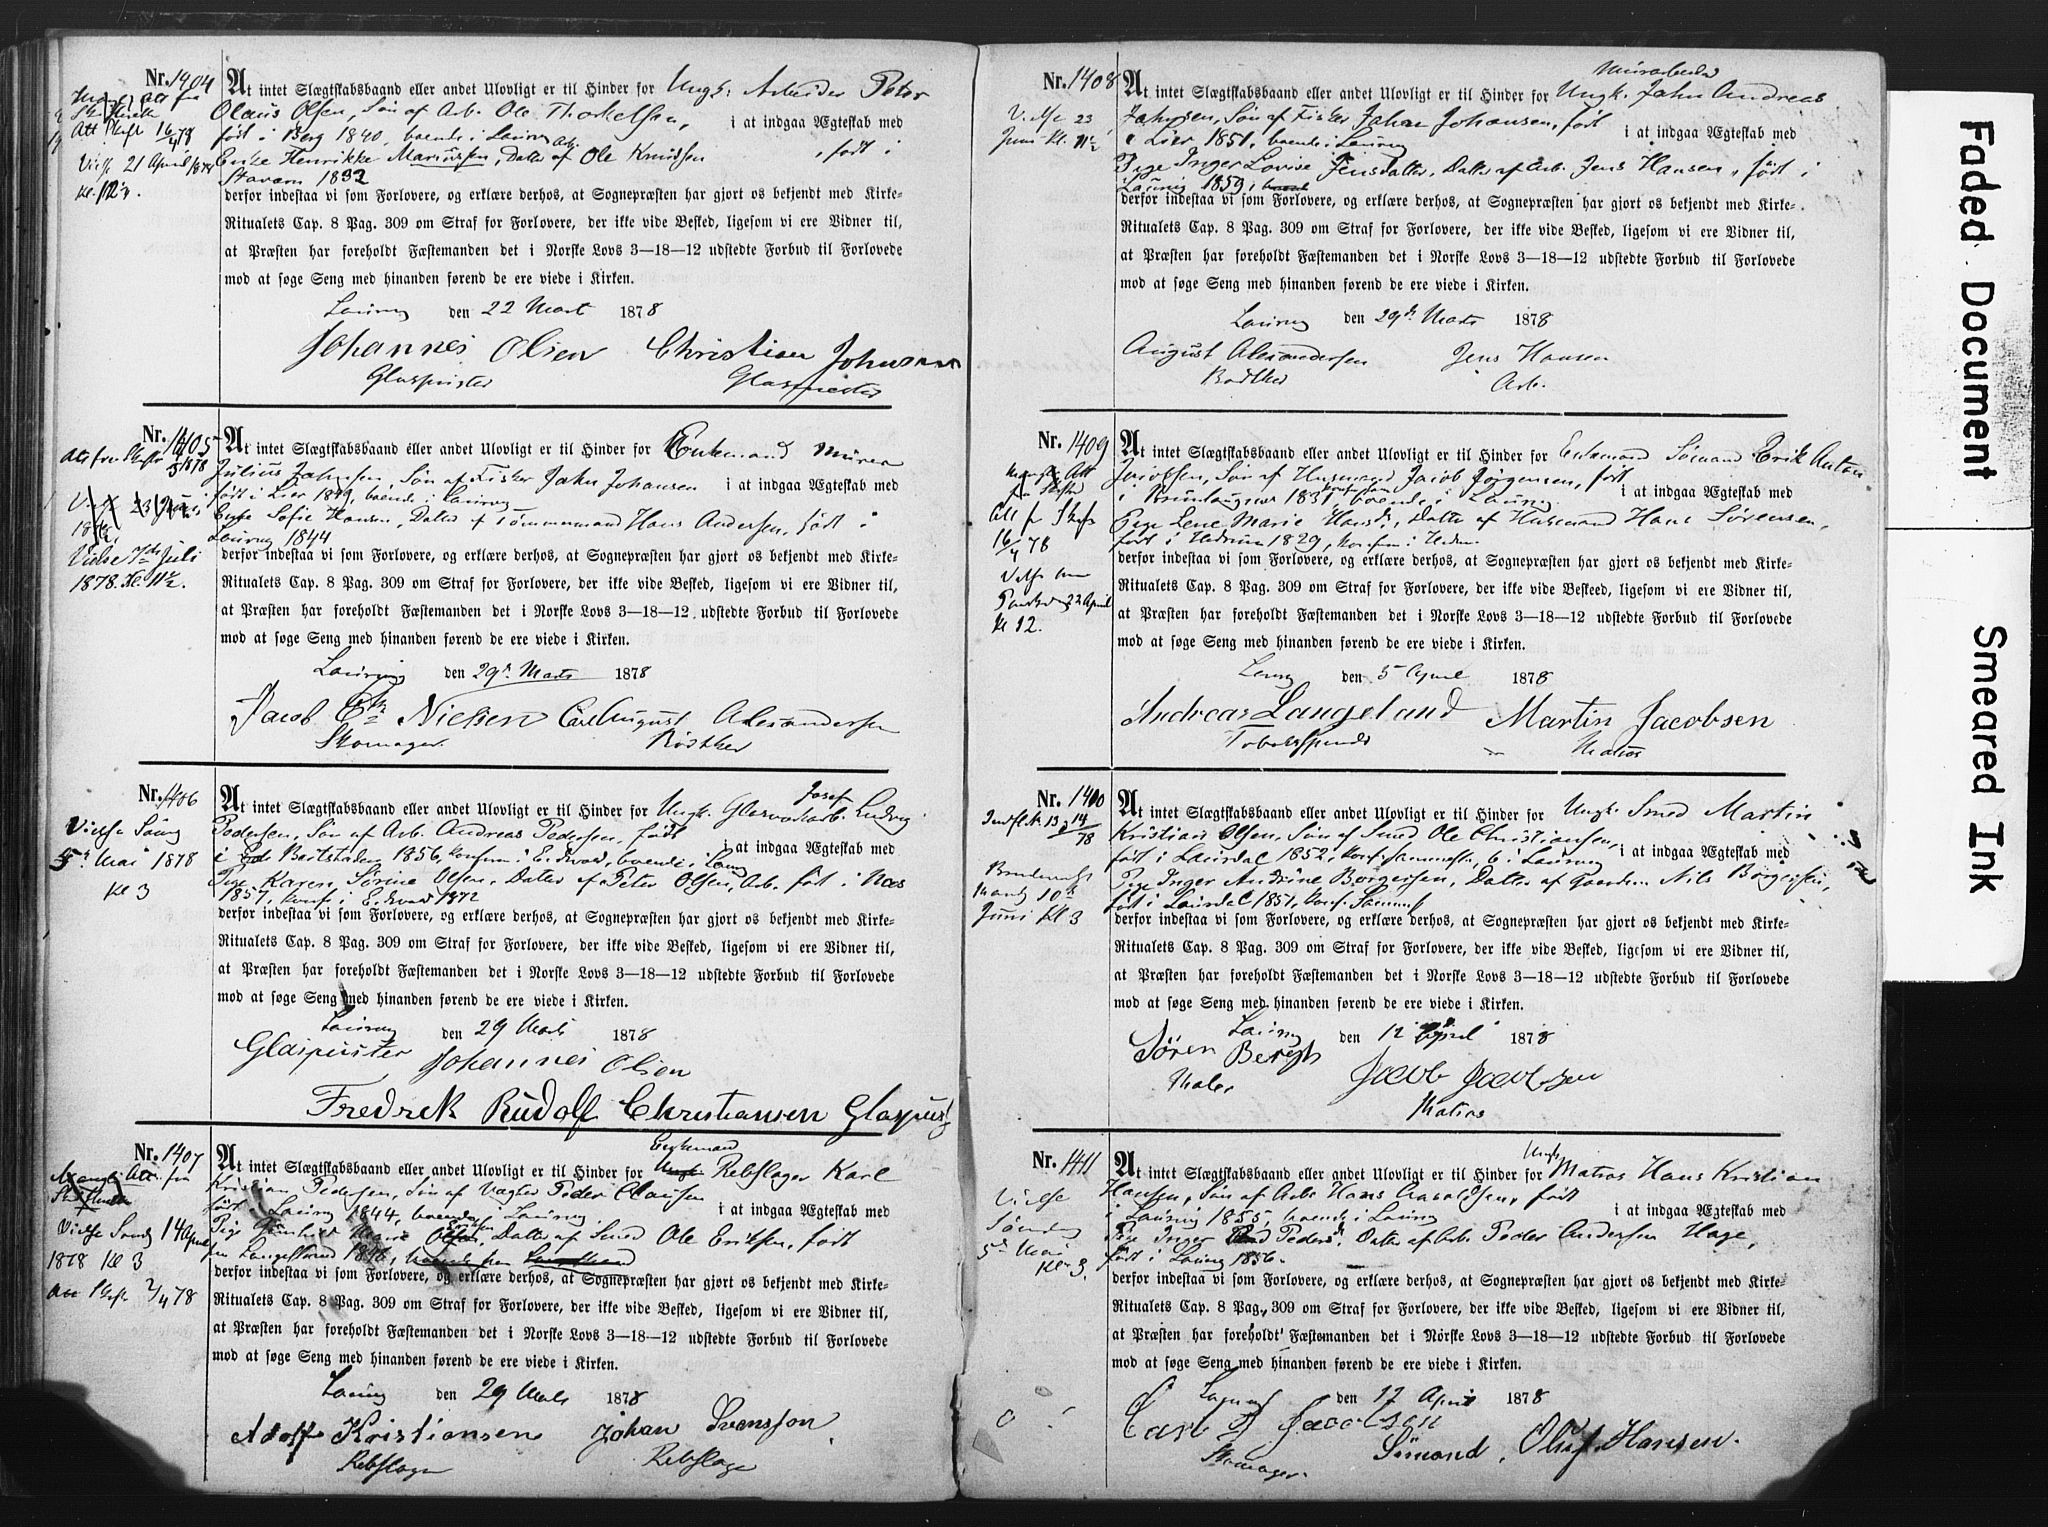 Nr. 1404
Att Skft 16/4 78
Vielse 21 April 1878
At intet Slægtskabsbaand eller andet Ulovligt er til Hinder for Ungk. Arbeider Peter
Olaus Olsen, Søn af Arb. Ole Thorkelsen,
født i Berg 1840, boende i Laurvig i at indgaa Ægteskab med
Enke Henrikke Mariussen, Datter af Arb. Ole Knudsen, født i
Stavern 1832
derfor indestaa vi som Forlovere, og erklære derhos, at Sognepræsten har gjort os bekjendt med Kirke-
Ritualets Cap. 8 Pag. 309 om Straf for Forlovere, der ikke vide Besked, ligesom vi ere Vidner til,
at Præsten har foreholdt Fæstemanden det i Norske Lovs 3—18—12 udstedte Forbud til Forlovede
mod at søge Seng med hinanden førend de ere viede i Kirken.
Laurvig den 22 Mart 1878
Johannes Olsen Christian Johnsen
Glaspuster Glasmester
Nr. 1405
Att fra Skft 1878
Vielse 23 Juni
Vielse 7de Juli
1878. Kl. 11½.
At intet Slægtskabsbaand eller andet Ulovligt er til Hinder for Enkemand Murer
Julius Jahnsen, Søn af Fisker Jahn Johansen i at indgaa Ægteskab med
født i Lier 1849, boende i Laurvig
Enke Sofie Hansen, Datter af Tømmermand Hans Andersen, født i
Laurvig 1844
derfor indestaa vi som Forlovere, og erklære derhos, at Sognepræsten har gjort os bekjendt med Kirke-
Ritualets Cap. 8 Pag. 309 om Straf for Forlovere, der ikke vide Besked, ligesom vi ere Vidner til,
at Præsten har foreholdt Fæstemanden det i Norske Lovs 3—18—12 udstedte Forbud til Forlovede
mod at søge Seng med hinanden førend de ere viede i Kirken.
Laurvig den 29de Marts 1878
Jacob Chr Nielsen Carl August Alexandersen
Skomager Bødtker
Nr. 1406
Vielse Søndg
5te Mai 1878
Kl 3
At intet Slægtskabsbaand eller andet Ulovligt er til Hinder for Ungk. Glasværkarb. Josef Ludvig
Pedersen, Søn af Arb. Andreas Pedersen, født i at indgaa Ægteskab med
i Beitstaden 1856, konfirm i Eidsvold, boende i Laurvig
Pige Karen Sørine Olsen, Datter af Peter Olsen, Arb. født i Næs
1857, konf i Eidsvold 1872
derfor indestaa vi som Forlovere, og erklære derhos, at Sognepræsten har gjort os bekjendt med Kirke-
Ritualets Cap. 8 Pag. 309 om Straf for Forlovere, der ikke vide Besked, ligesom vi ere Vidner til,
at Præsten har foreholdt Fæstemanden det i Norske Lovs 3—18—12 udstedte Forbud til Forlovede
mod at søge Seng med hinanden førend de ere viede i Kirken.
Laurvig den 29 Marts 1878
Glaspuster Johannes Olsen
Fredrek Rudolf Christiansen Glaspust
Nr. 1407
Mangl. Att. fra
Vielse Søndg 14 April
1878 Kl 3
Att Skft 2/4 78
At intet Slægtskabsbaand eller andet Ulovligt er til Hinder for Ungk. Enkemand Rebslager Karl
Kristian Pedersen, Søn af Vagter Peder Clausen
født i Laurvig 1844, boende i Laurvig i at indgaa Ægteskab med
Pige Marie Olsen Eriksen, Datter af Smed Ole Eriksen, født
derfor indestaa vi som Forlovere, og erklære derhos, at Sognepræsten har gjort os bekjendt med Kirke-
Ritualets Cap. 8 Pag. 309 om Straf for Forlovere, der ikke vide Besked, ligesom vi ere Vidner til,
at Præsten har foreholdt Fæstemanden det i Norske Lovs 3—18—12 udstedte Forbud til Forlovede
mod at søge Seng med hinanden førend de ere viede i Kirken.
Laurvig den 29 Marts 1878
Adolf Kristiansen Johan Svensson
Rebslager Rebslager
Nr. 1408
Vielse 23
Juni Kl. 11½
At intet Slægtskabsbaand eller andet Ulovligt er til Hinder for Ungk. Murarbeider Jahn Andreas
Jahnsen, Søn af Fisker Jahn Johansen, født
i Lier 1851, boende i Laurvig i at indgaa Ægteskab med
Pige Inger Lovise Jensdatter, Datter af Arb. Jens Hansen, født i
Laurvig 1859, boende
derfor indestaa vi som Forlovere, og erklære derhos, at Sognepræsten har gjort os bekjendt med Kirke-
Ritualets Cap. 8 Pag. 309 om Straf for Forlovere, der ikke vide Besked, ligesom vi ere Vidner til,
at Præsten har foreholdt Fæstemanden det i Norske Lovs 3—18—12 udstedte Forbud til Forlovede
mod at søge Seng med hinanden førend de ere viede i Kirken.
Laurvig den 29de Marts 1878
August Alexandersen Jens Hansen
Bødtker Arb.
Nr. 1409
Mangl. Att
fra Skifte
Att fr Skft
16/4 78
Vielse
22 April
Kl 12.
At intet Slægtskabsbaand eller andet Ulovligt er til Hinder for Enkemand Sømand Erik Anton
Jacobsen, Søn af Husmand Jacob Jørgensen, født
i Brunlaugnæs 1831, boende i Laurvig i at indgaa Ægteskab med
Pige Lene Marie Hansdr, Datter af Husmand Hans Sørensen,
født i Hedrum 1829, konfirm i Hedrum
derfor indestaa vi som Forlovere, og erklære derhos, at Sognepræsten har gjort os bekjendt med Kirke-
Ritualets Cap. 8 Pag. 309 om Straf for Forlovere, der ikke vide Beskeed, ligesom vi ere Vidner til,
at Præsten har foreholdt Fæstemanden det i Norske Lovs 3—18—12 udstedte Forbud til Forlovede
mod at søge Seng med hinanden førend de ere viede i Kirken.
Laurvig den 5 April 1878
Andreas Langeland Martin Jacobsen
Tobakspinder Matros
Nr. 1410
Mandg 10de
Juni Kl 3
At intet Slægtskabsbaand eller andet Ulovligt er til Hinder for Ungk. Smed Martin
Kristian Olsen, Søn af Smed Ole Christiansen,
født i Laurdal 1852, konf. sammest, b i Laurvig i at indgaa Ægteskab med
Pige Inger Andrine Børgersen, Datter af Gaardm. Nils Børgersen,
født i Laurdal 1851, konf. samme
derfor indestaa vi som Forlovere, og erklære derhos, at Sognepræsten har gjort os bekjendt med Kirke-
Ritualets Cap. 8 Pag. 309 om Straf for Forlovere, der ikke vide Besked, ligesom vi ere Vidner til,
at Præsten har foreholdt Fæstemanden det i Norske Lovs 3—18—12 udstedte Forbud til Forlovede
mod at søge Seng med hinanden førend de ere viede i Kirken.
Laurvig den 12 April 1878
Søren Bergh Jacob Jacobsen
Maler Matros
Nr. 1411
Vielse
Søndag
5te Mai
Kl. 3.
At intet Slægtskabsbaand eller andet Ulovligt er til Hinder for Ungk. Matros Hans Kristian
Hansen, Søn af Arb. Hans Haraldsen, født
i Laurvig 1855, boende i Laurvig i at indgaa Ægteskab med
Pige Inger Pedersdr, Datter af Arb. Peder Andersen Hage,
født i Laurvig 1856.
derfor indestaa vi som Forlovere, og erklære derhos, at Sognepræsten har gjort os bekjendt med Kirke-
Ritualets Cap. 8 Pag. 309 om Straf for Forlovere, der ikke vide Besked, ligesom vi ere Vidner til,
at Præsten har foreholdt Fæstemanden det i Norske Lovs 3—18—12 udstedte Forbud til Forlovede
mod at søge Seng med hinanden førend de ere viede i Kirken.
Laurvig den 17 April 1878
Carl Jacobsen Oluf Hansen.
Skomager. Sømand,
Faded Document
Smeared Ink